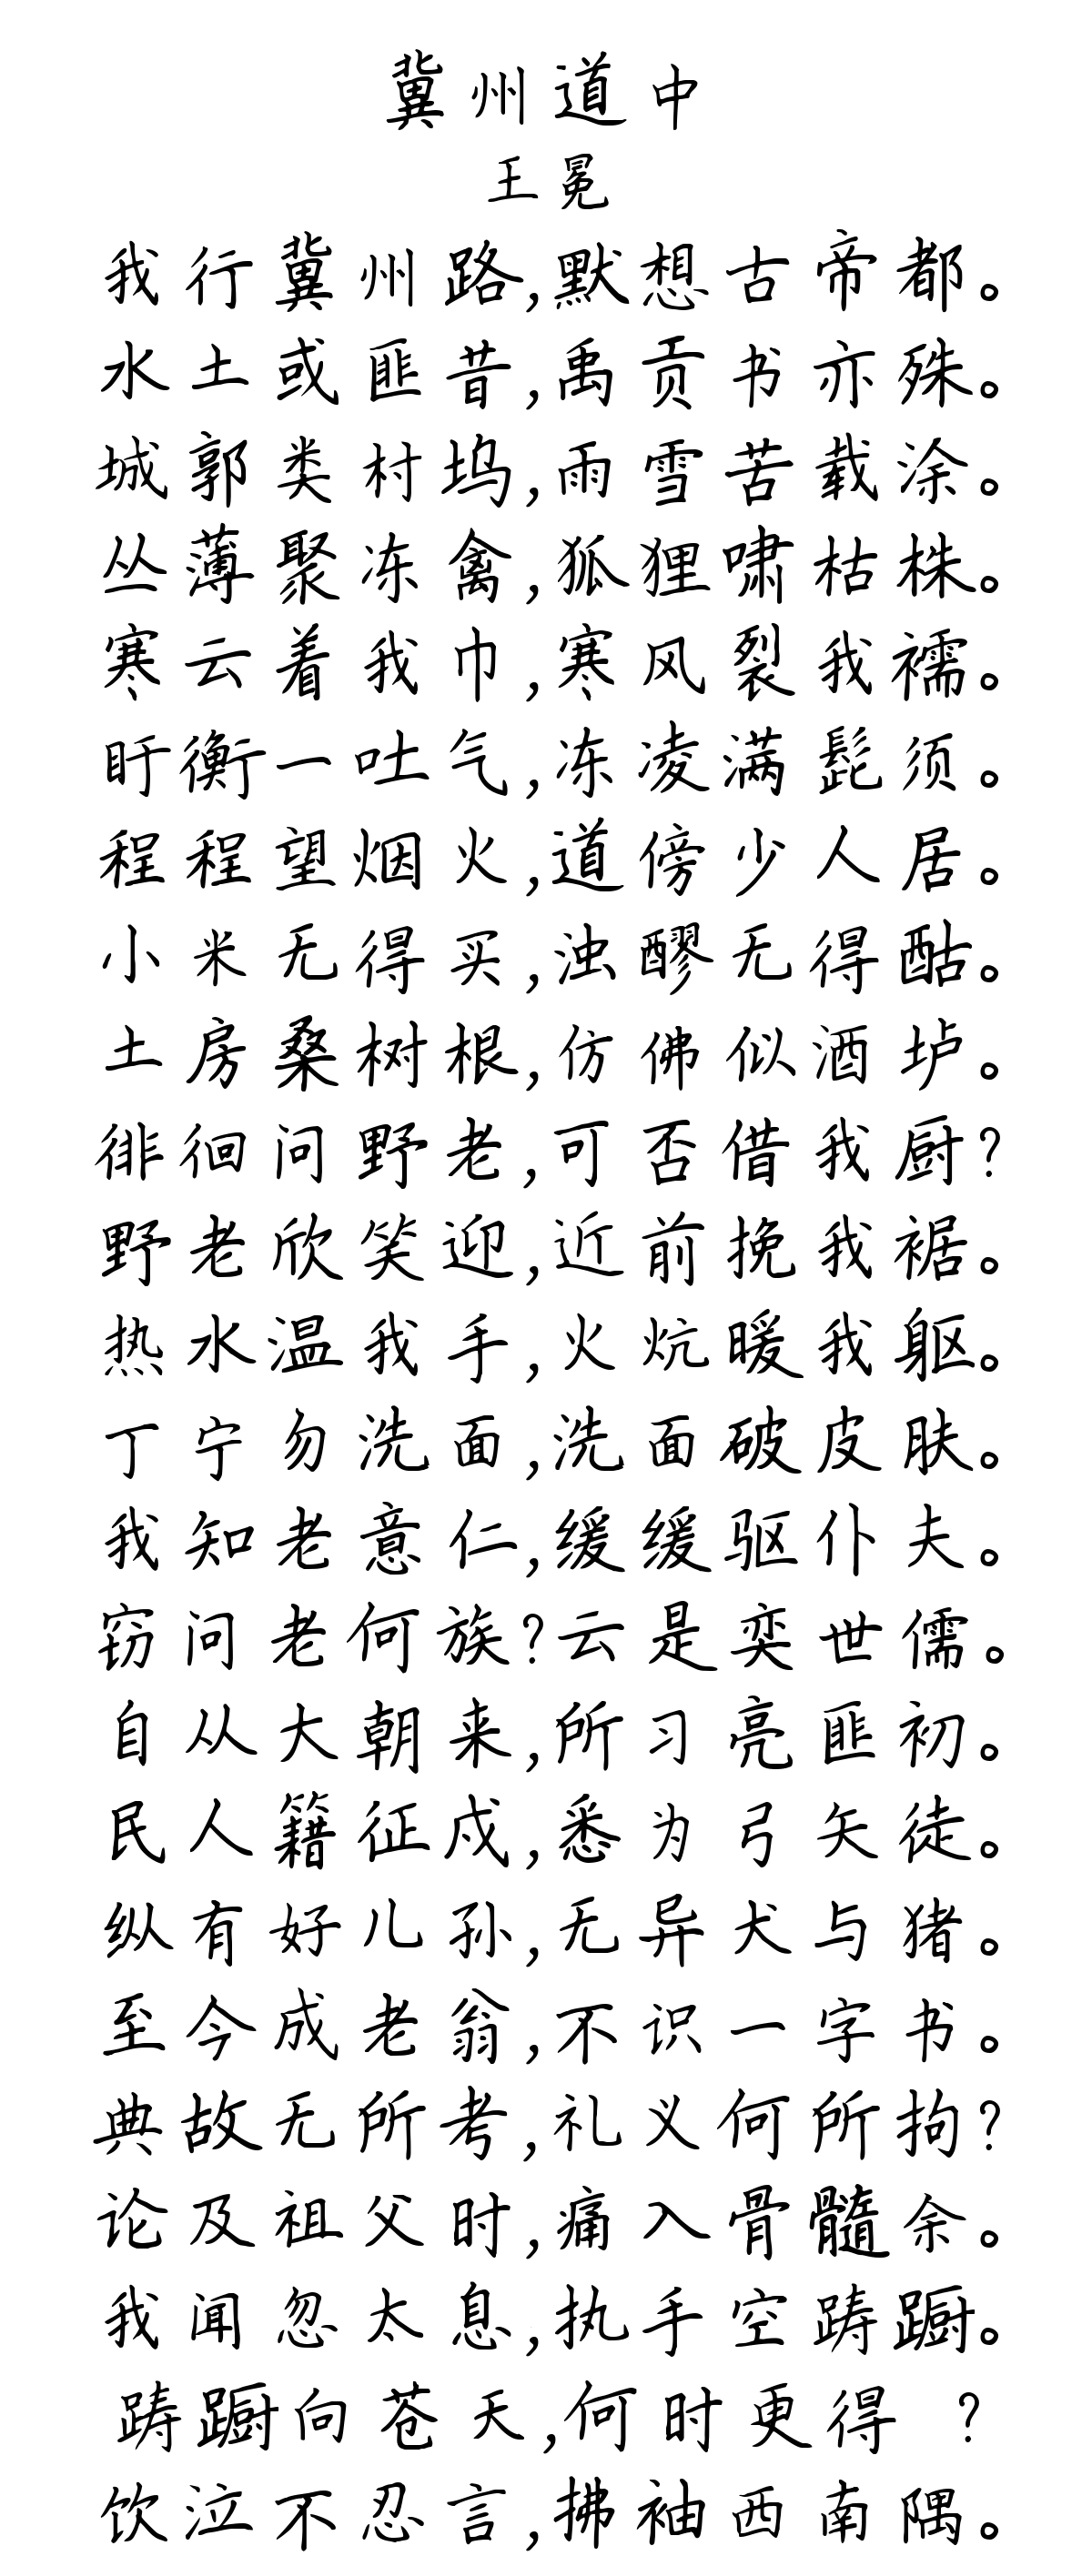 冀州道中
王冕
我行冀州路,默想古帝都。
水土或匪昔,禹贡书亦殊。
城郭类村坞,雨雪苦载涂。
丛薄聚冻禽,狐狸啸枯株。
寒云着我巾,寒风裂我襦。
盱衡一吐气,冻凌满髭须。
程程望烟火,道傍少人居。
小米无得买,浊醪无得酤。
土房桑树根,仿佛似酒垆。
徘徊问野老,可否借我厨?
野老欣笑迎,近前挽我裾。
热水温我手,火炕暖我躯。
丁宁勿洗面,洗面破皮肤。
我知老意仁,缓缓驱仆夫。
窃问老何族?云是奕世儒。
自从大朝来,所习亮匪初。
民人籍征戍,悉为弓矢徒。
纵有好儿孙,无异犬与猪。
至今成老翁,不识一字书。
典故无所考,礼义何所拘?
论及祖父时,痛入骨髓余。
我闻忽太息,执手空踌蹰。
踌蹰向苍天,何时更得 ?
饮泣不忍言,拂袖西南隅。